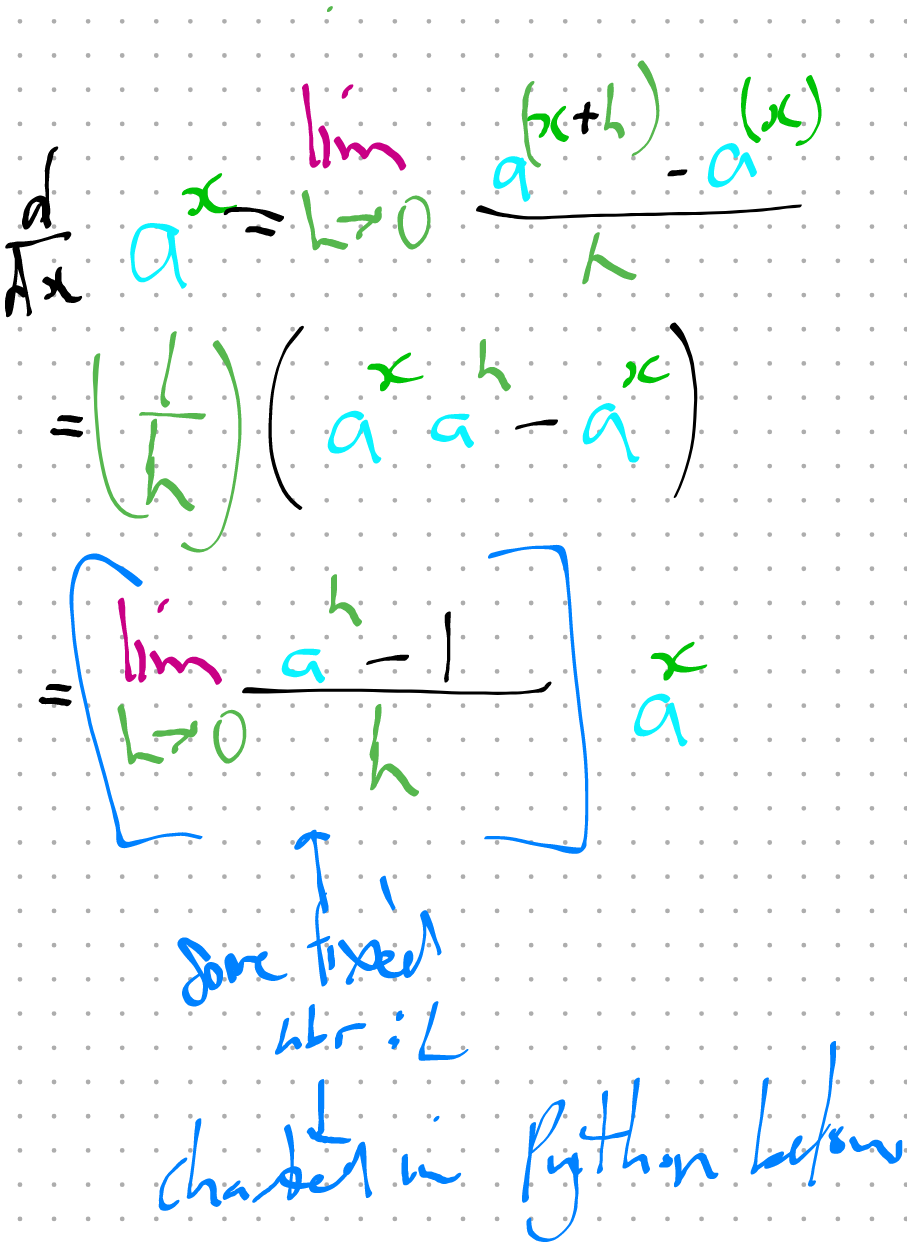 d/dx a^x = lim h→0 (a^(x+h) - a^(x))/h
= (1/h) (a^x a^h - a^x)
= [lim h→0 (a^h - 1)/h] a^x
↑
Some fixed
nbr : L
↓
charted in Python below